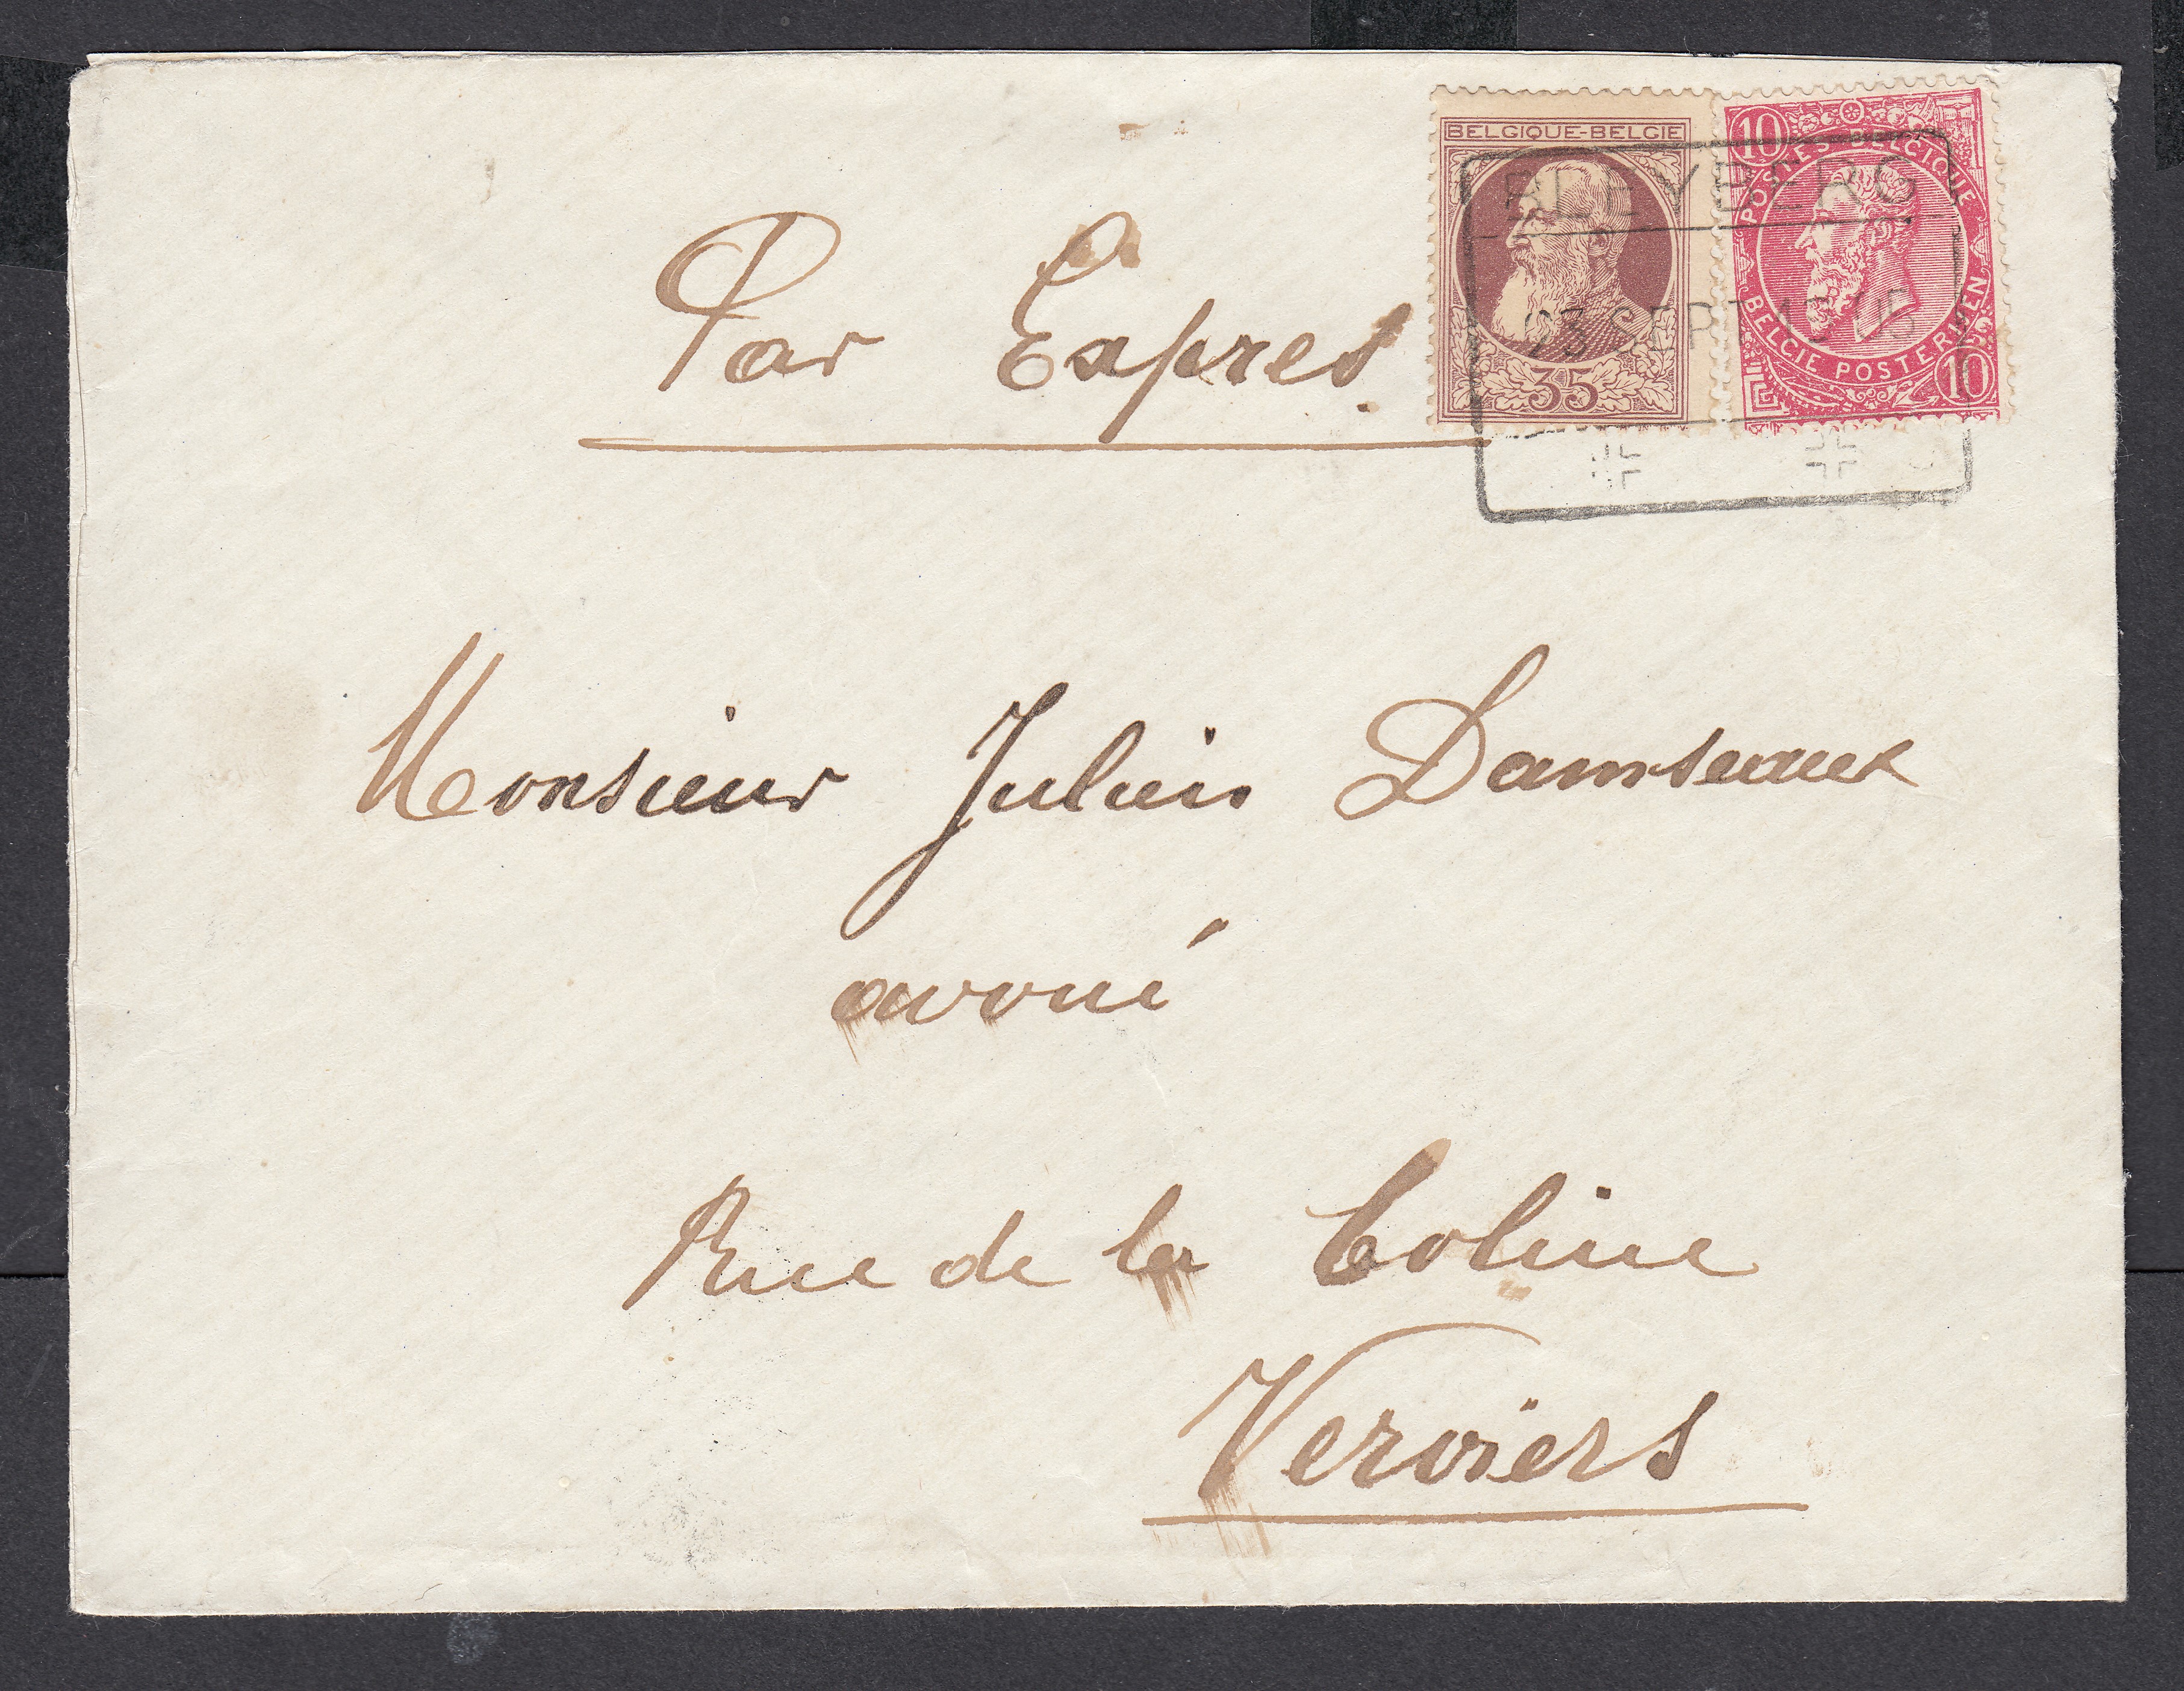 BELGIQUE-BELGIE
35
10
POSTES BELGIQUE
BELGIE POSTERIJEN
10
BLEYBERG
23 SEPT
Par Expres
Monsieur Julien Damseaux
avoué
Rue de la Coline
Verviers